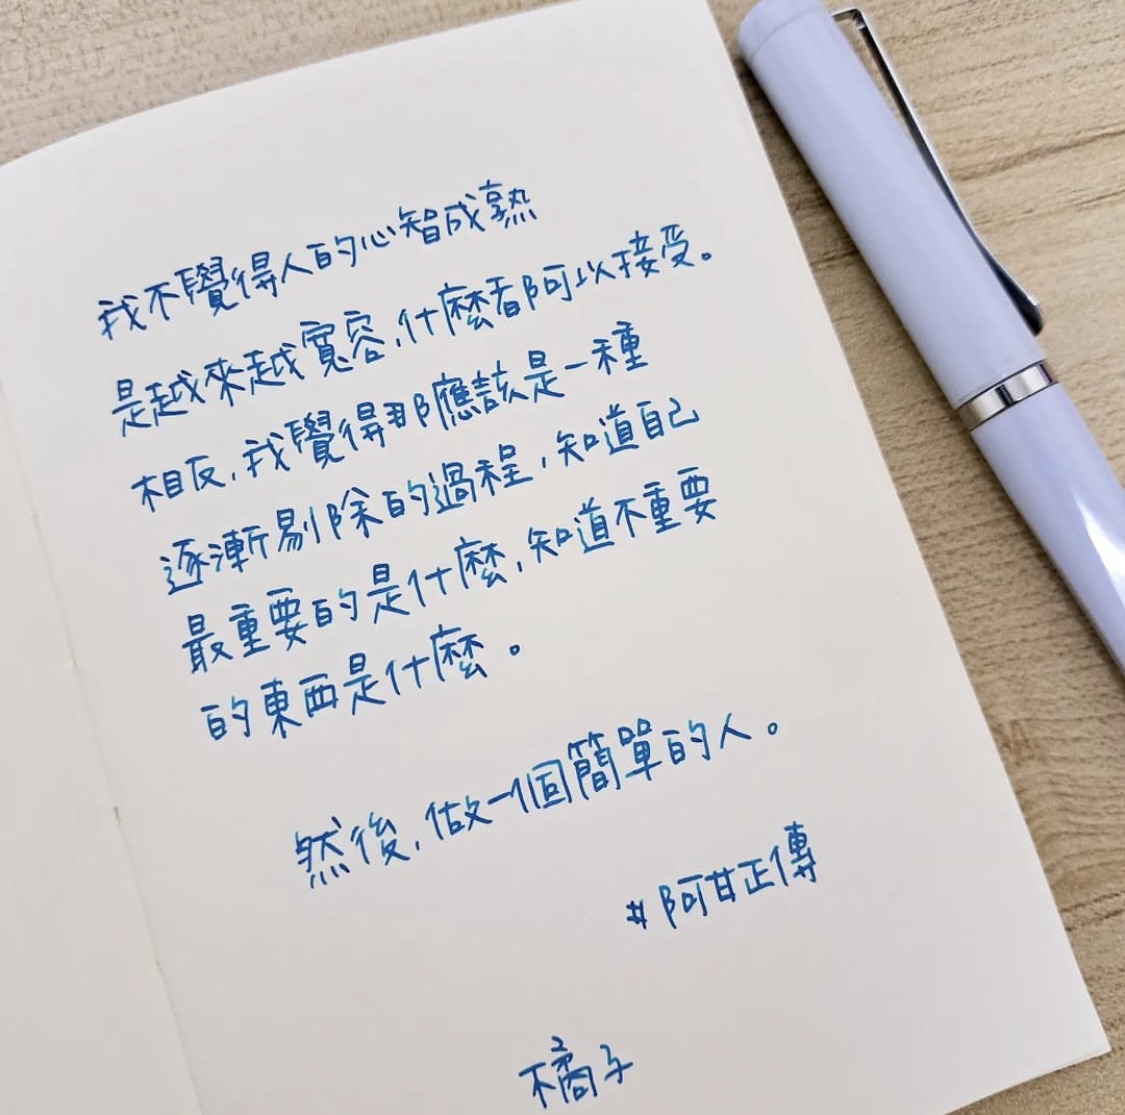 我不覺得人的心智成熟
是越來越寬容,什麼都可以接受。
相反,我覺得那應該是一種
逐漸剔除的過程,知道自己
最重要的是什麼,知道不重要
的東西是什麼。
然後,做一個簡單的人。
#阿甘正傳
橘子